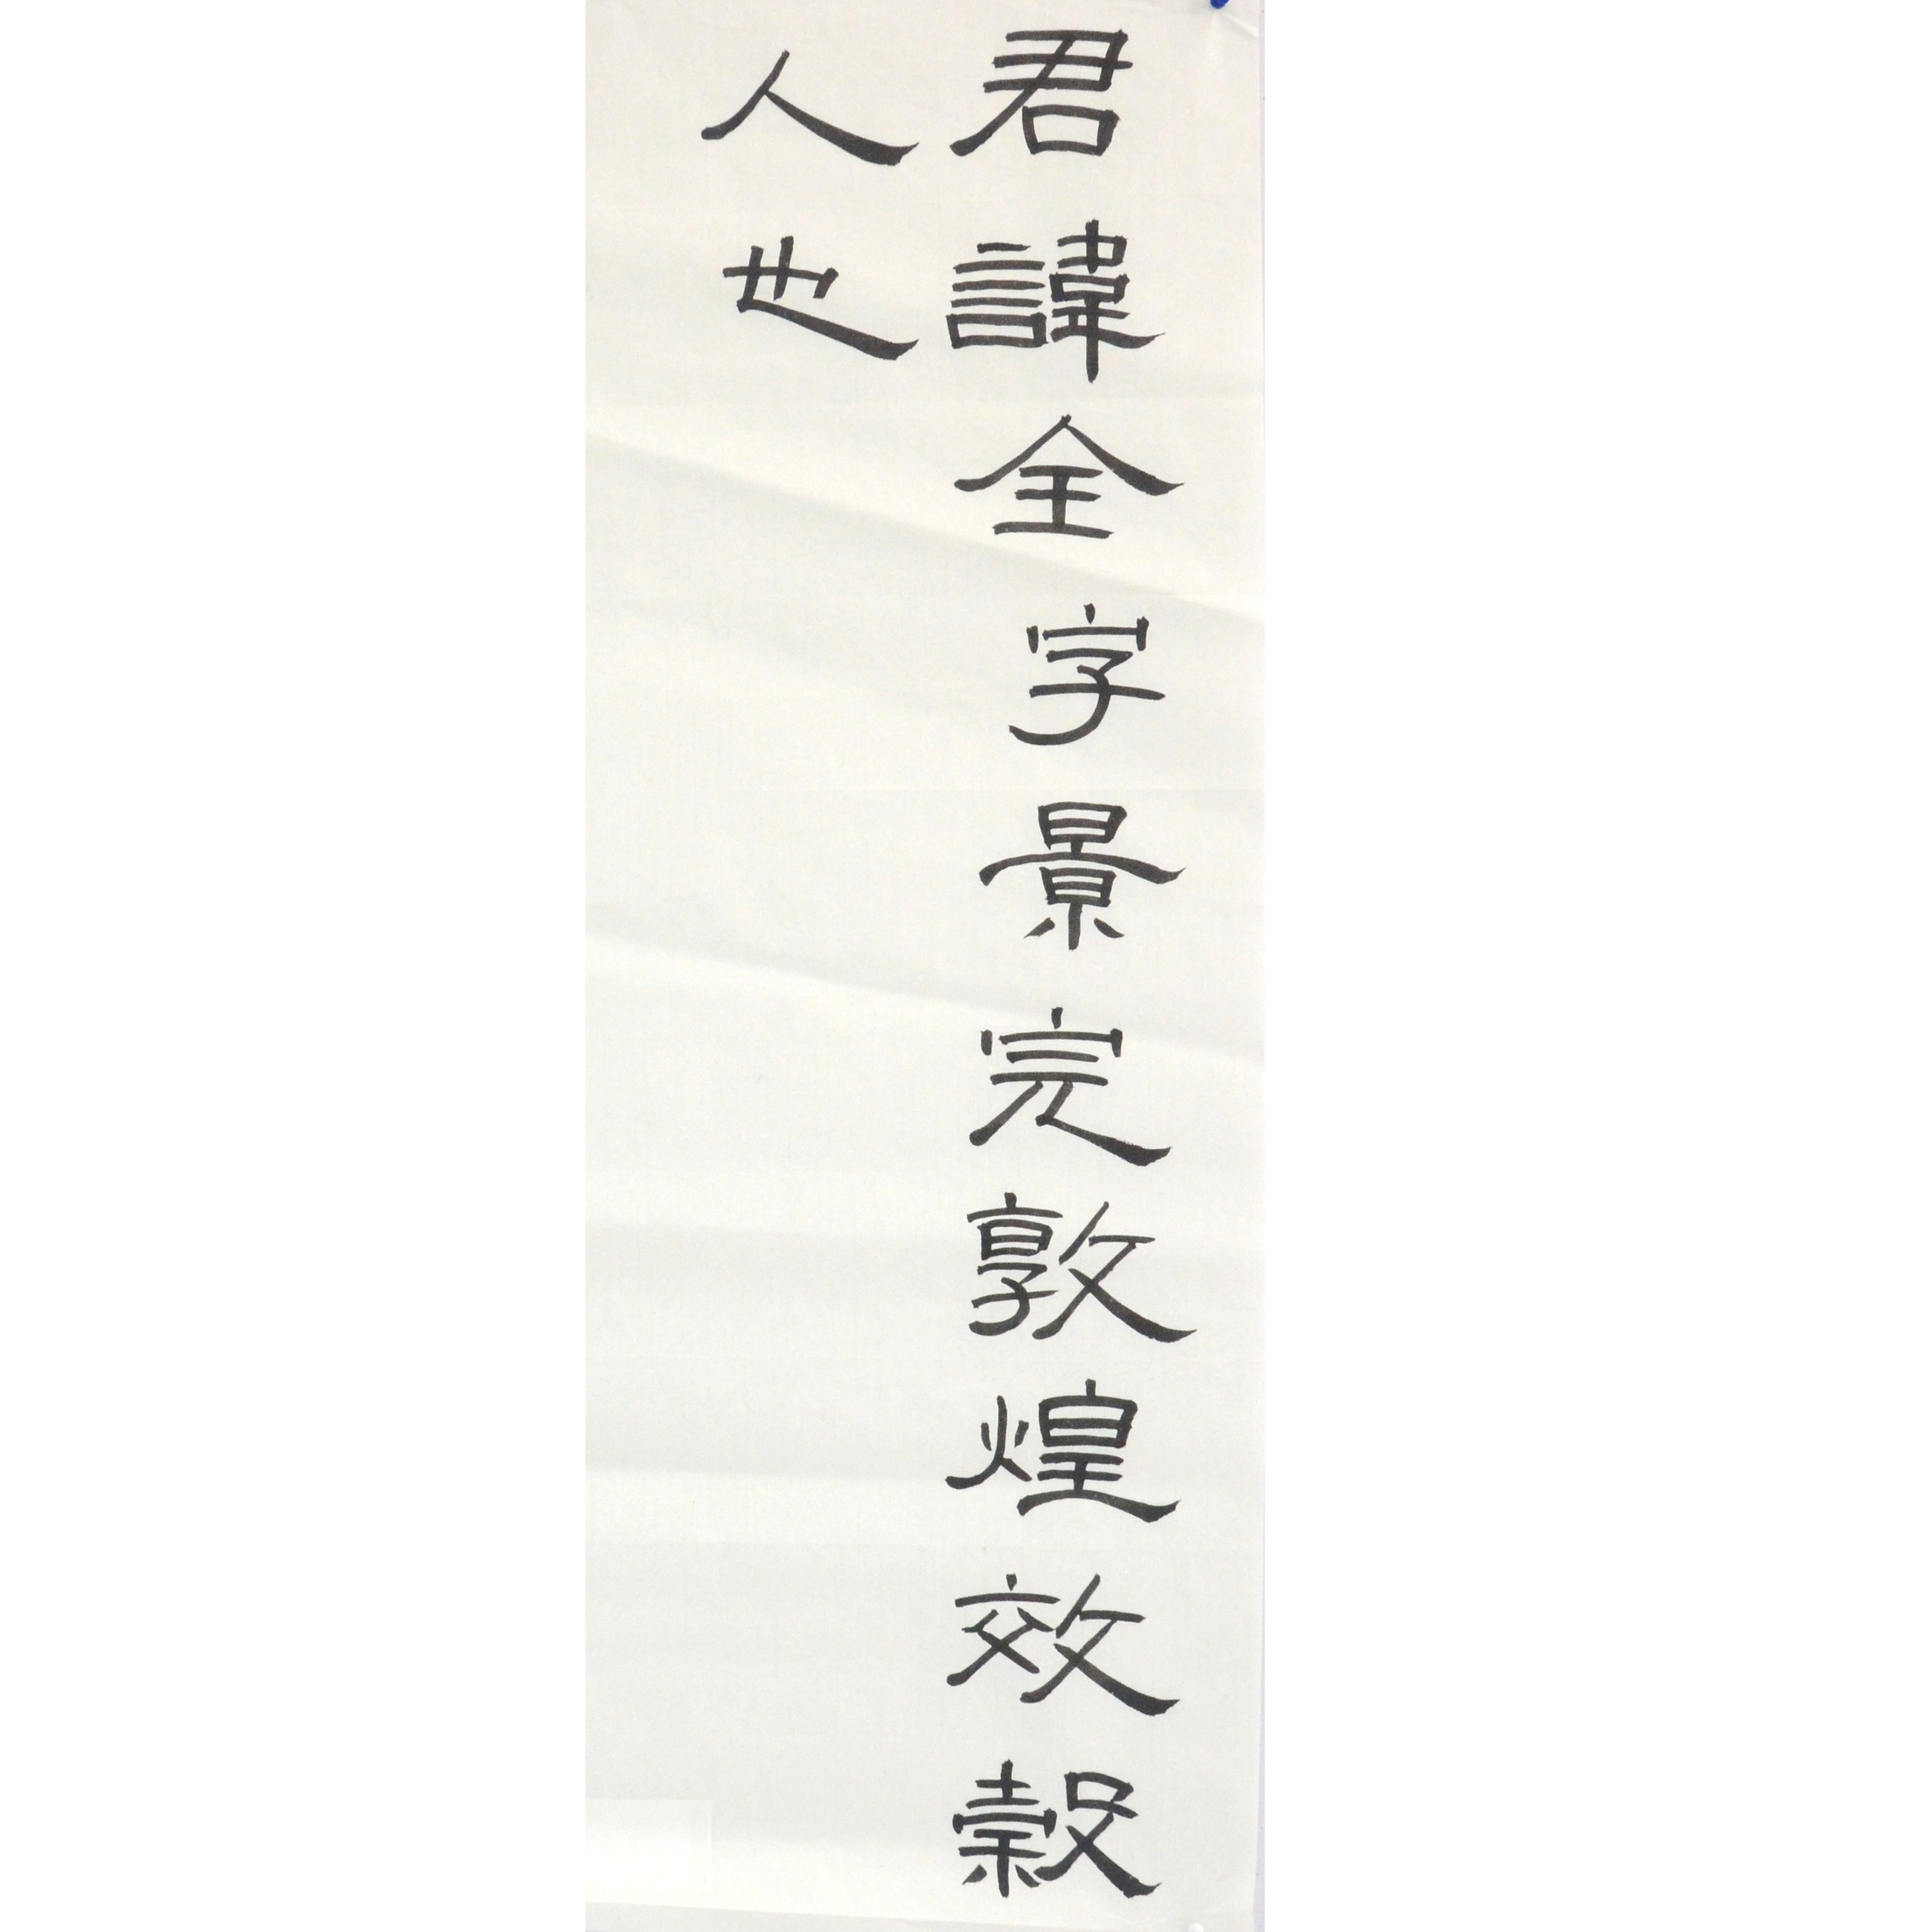 君諱全字景完敦煌效穀
人也